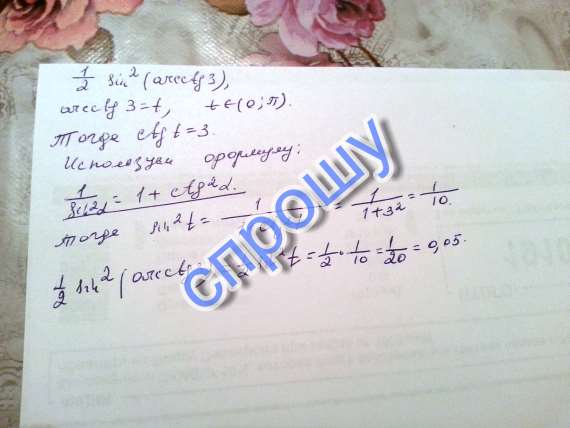 1/2 sin² (arcctg 3),
arcctg 3 = t, t ∈ (0; π).
Тогда ctg t = 3.
Используем формулу:
1/sin²α = 1 + ctg²α.
Тогда sin² t = 1 = 1/(1+3²) = 1/10.
1/2 sin² (arcctg t = 1/2 · 1/10 = 1/20 = 0,05.
спрошу